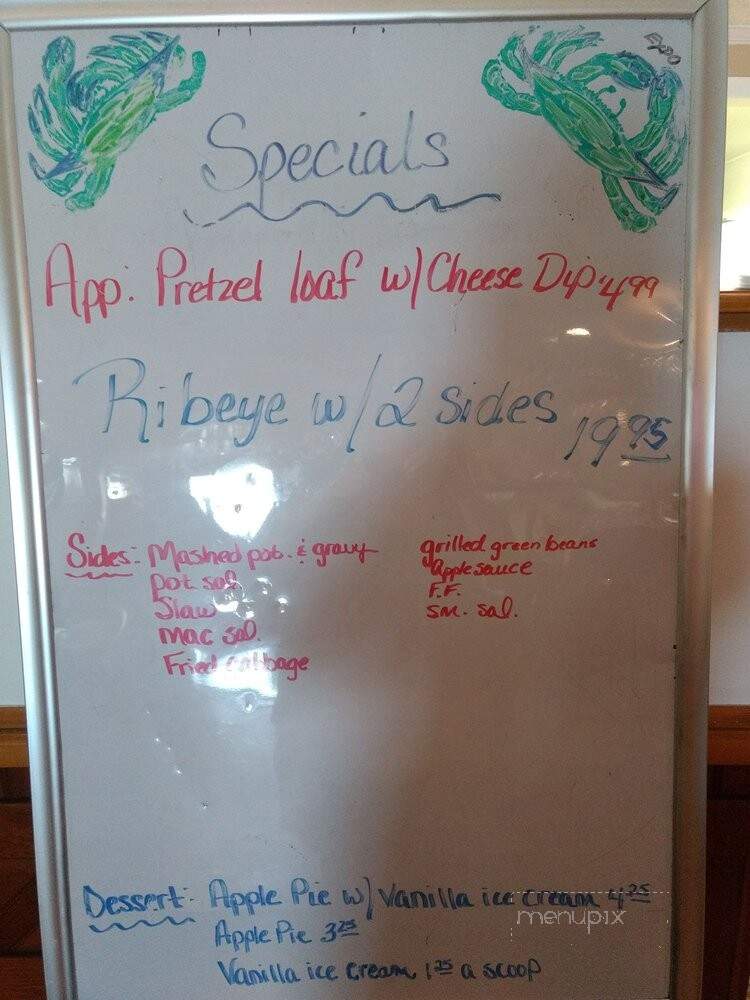 EXPO
Specials
App: Pretzel loaf w/ Cheese Dip 4.99
Ribeye w/2 sides 19 95
Sides: Mashed pot. & gravy
pot sal
Slaw
Mac sal.
Fried Cabbage
grilled green beans
Apple sauce
F.F.
sm. sal.
Dessert: Apple Pie w/ Vanilla ice cream 4 25
Apple Pie 3 25
Vanilla ice cream 1 25 a scoop
menupix